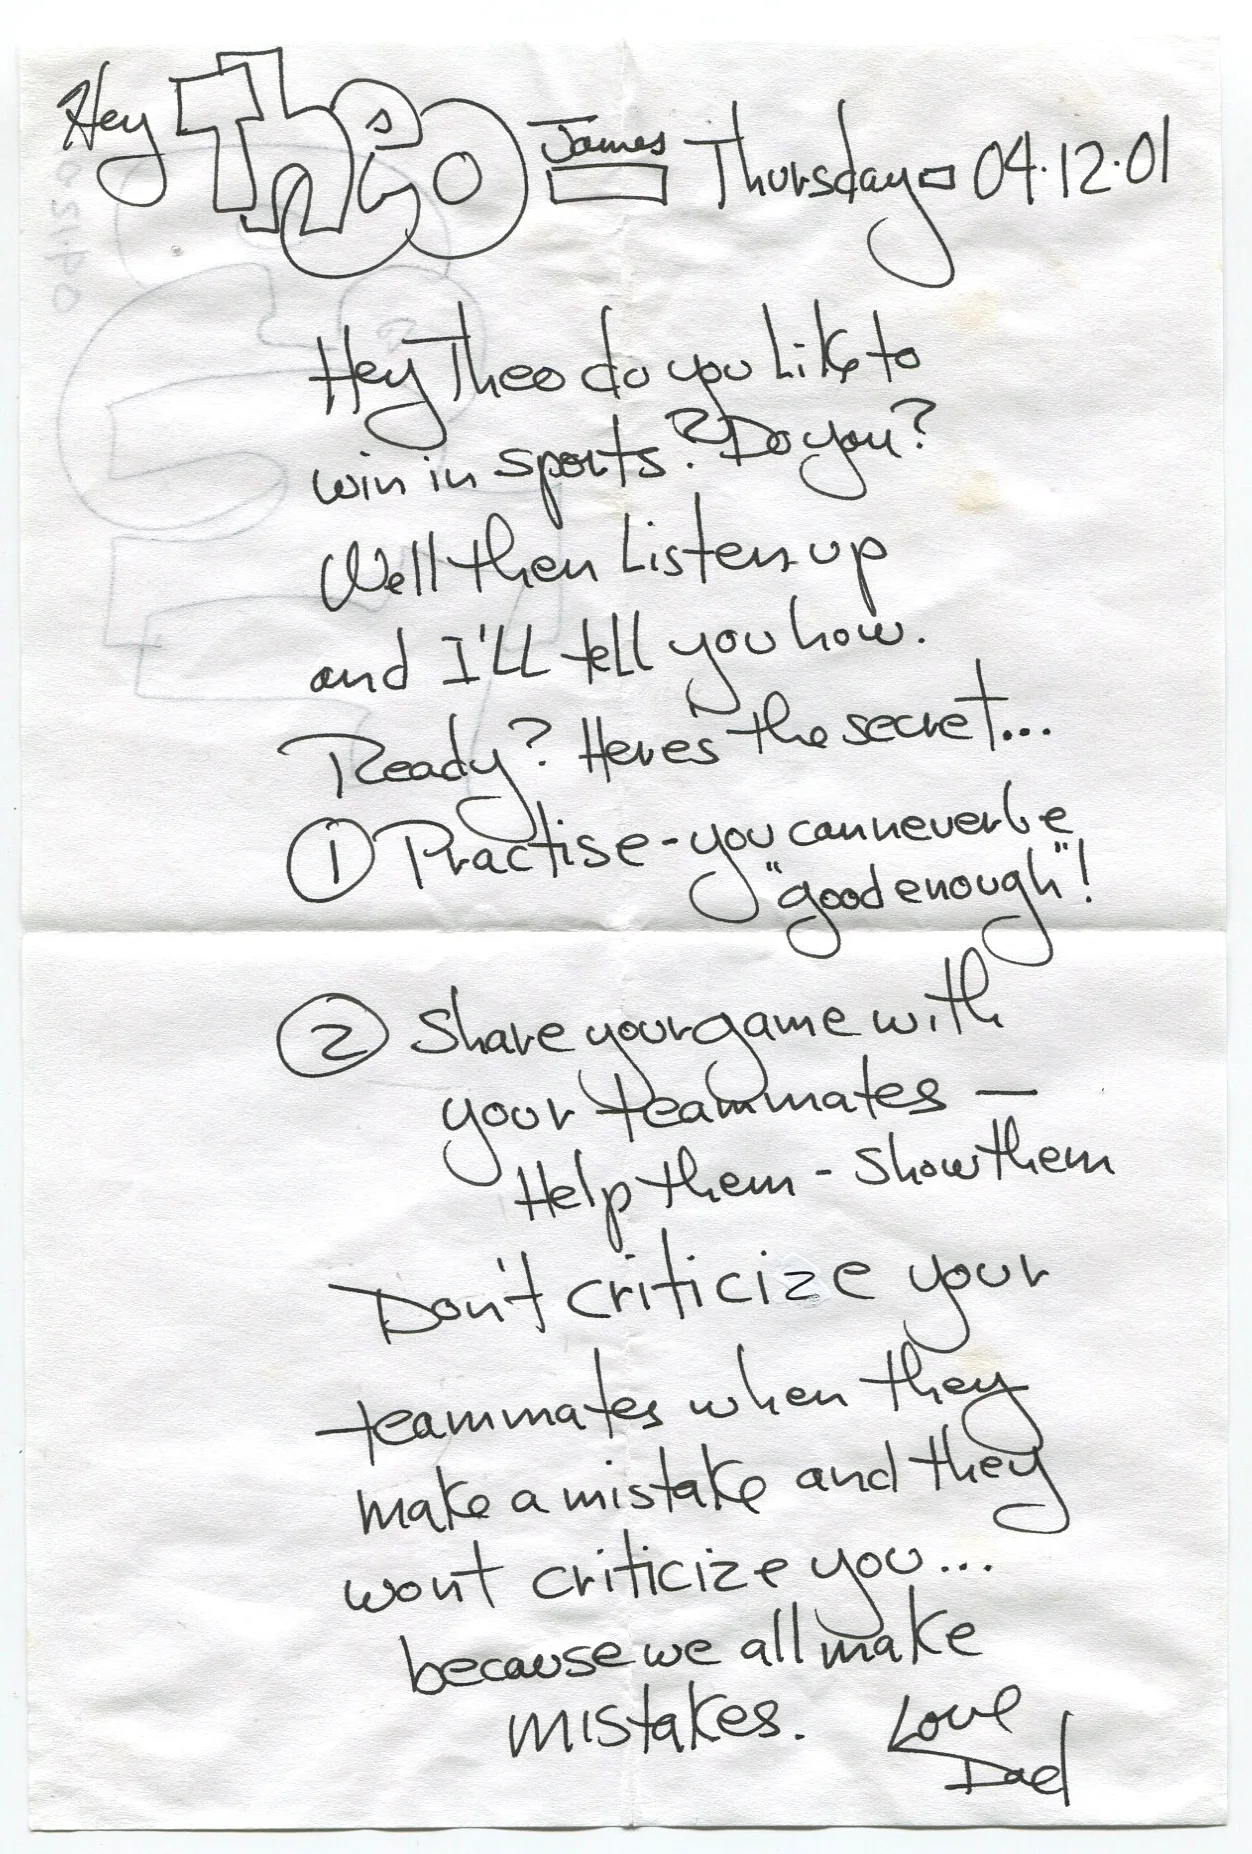 Hey Theo James Thursday 04.12.01
Hey Theo do you like to
win in sports? Do you?
Well then Listen up
and I'LL tell you how.
Ready? Heres the secret...
1 Practise - you can never be
"good enough"!
2 Share your game with
your teammates —
Help them - show them
Don't criticize your
teammates when they
make a mistake and they
wont criticize you...
because we all make
mistakes. Love
Dad